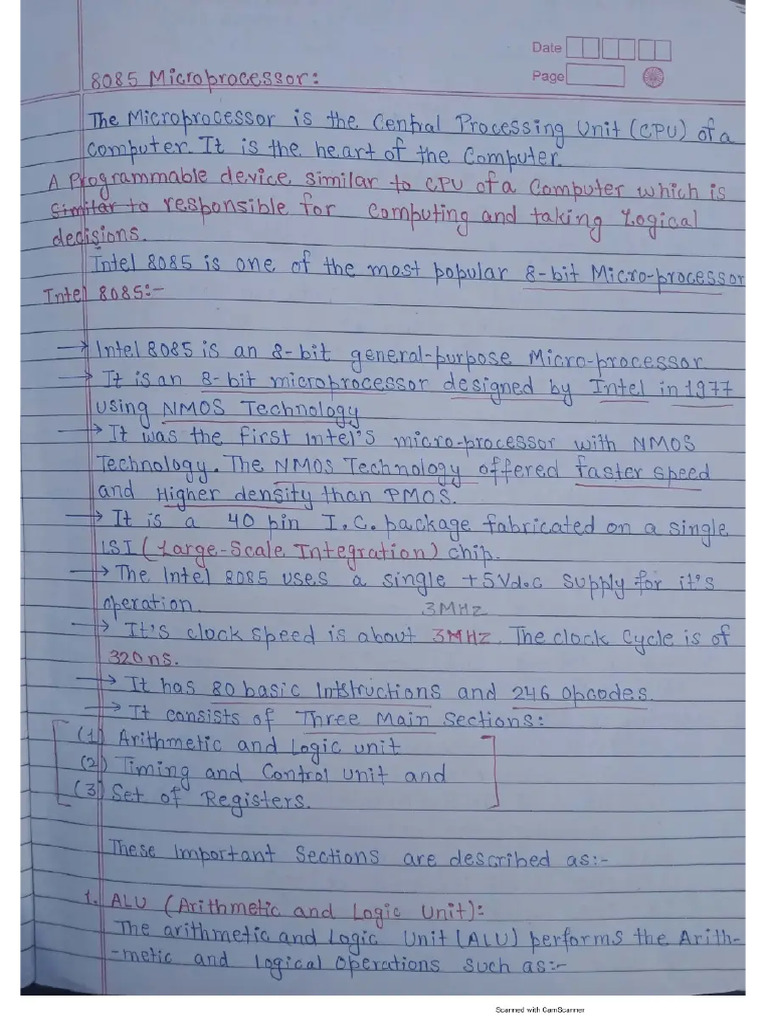 Date
Page
8085 Microprocessor:
The Microprocessor is the Central Processing Unit (CPU) of a
Computer. It is the heart of the Computer.
A Programmable device similar to CPU of a Computer which is
similar to responsible for Computing and taking Logical
decisions.
Intel 8085 is one of the most popular 8-bit Micro-processor
Intel 8085:-
→ Intel 8085 is an 8-bit general-purpose Micro-processor.
→ It is an 8-bit microprocessor designed by Intel in 1977
using NMOS Technology
→ It was the first Intel's micro-processor with NMOS
Technology. The NMOS Technology offered faster speed
and Higher density than PMOS.
→ It is a 40 pin I.C. package fabricated on a single
LSI (Large-Scale Integration) chip.
→ The Intel 8085 uses a single +5Vd.c supply for it's
operation.
3MHz
→ It's clock speed is about 3MHz. The clock Cycle is of
320ns.
→ It has 80 basic Intstructions and 246 opcodes.
→ It consists of Three Main Sections:
(1) Arithmetic and Logic unit
(2) Timing and Control unit and
(3) Set of Registers.
These important Sections are described as:-
1. ALU (Arithmetic and Logic Unit):
The arithmetic and Logic Unit (ALU) performs the Arith-
-metic and Logical Operations such as:-
Scanned with CamScanner